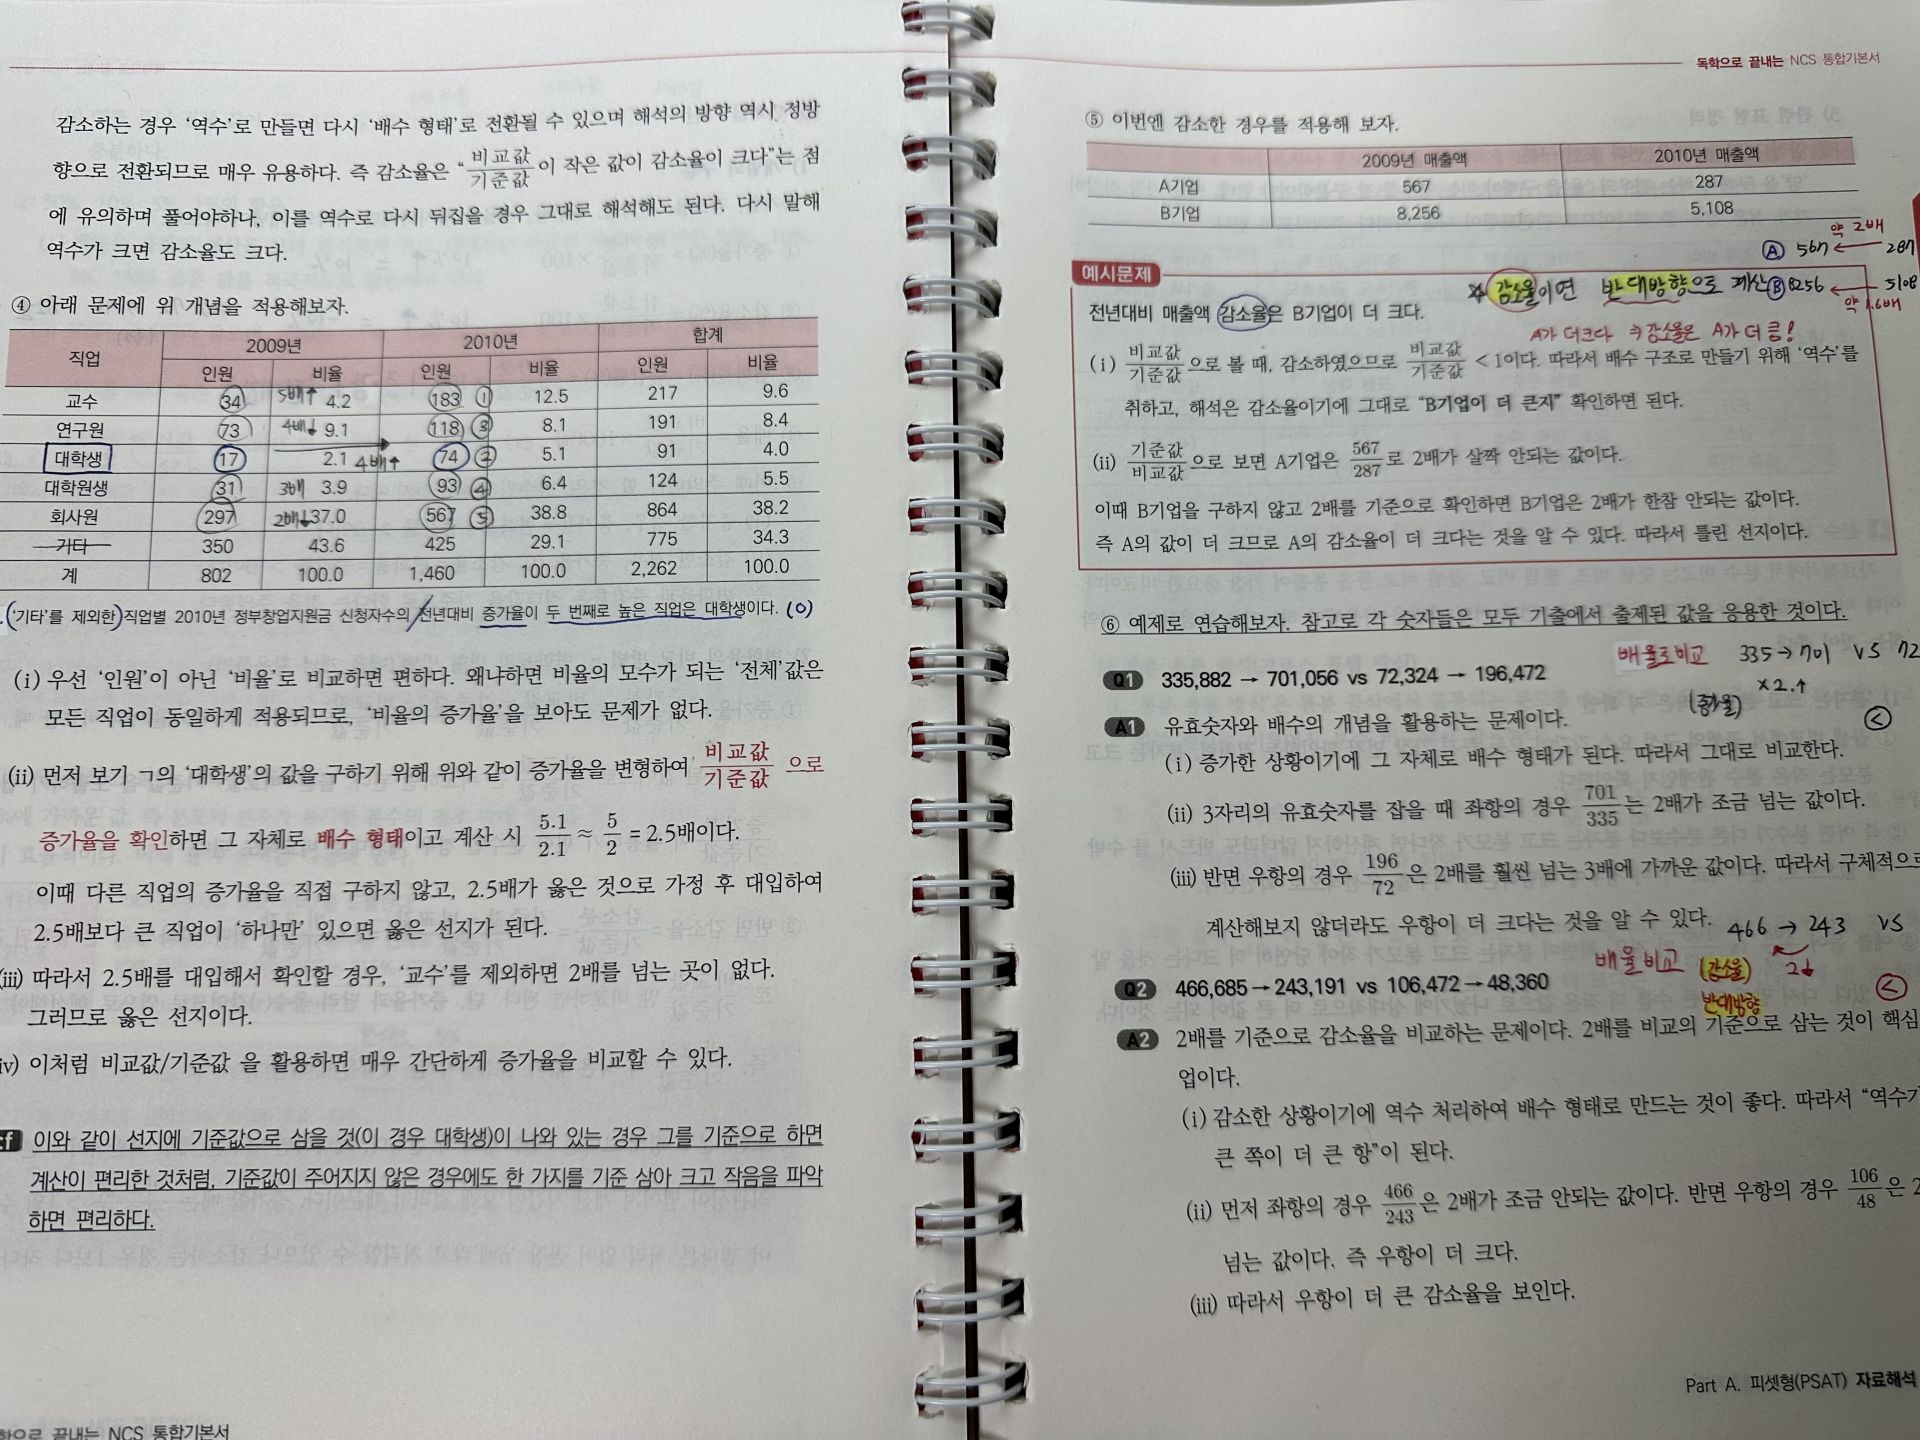 감소하는 경우 ‘역수’로 만들면 다시 ‘배수 형태’로 전환될 수 있으며 해석의 방향 역시 정방
향으로 전환되므로 매우 유용하다. 즉 감소율은 “비교값/기준값이 작은 값이 감소율이 크다”는 점
에 유의하며 풀어야하나, 이를 역수로 다시 뒤집을 경우 그대로 해석해도 된다. 다시 말해
역수가 크면 감소율도 크다.
④ 아래 문제에 위 개념을 적용해보자.
직업 2009년 2010년 합계
인원 비율 인원 비율 인원 비율
교수 34 5배↑ 4.2 183 ① 12.5 217 9.6
연구원 73 4배↓ 9.1 118 ③ 8.1 191 8.4
대학생 17 2.1 4배↑ 74 ② 5.1 91 4.0
대학원생 31 3배 3.9 93 ④ 6.4 124 5.5
회사원 297 2배↓ 37.0 567 ⑤ 38.8 864 38.2
기타 350 43.6 425 29.1 775 34.3
계 802 100.0 1,460 100.0 2,262 100.0
(‘기타’를 제외한) 직업별 2010년 정부창업지원금 신청자수의 전년대비 증가율이 두 번째로 높은 직업은 대학생이다. (O)
(i) 우선 ‘인원’이 아닌 ‘비율’로 비교하면 편하다. 왜냐하면 비율의 모수가 되는 ‘전체’값은
모든 직업이 동일하게 적용되므로, ‘비율의 증가율’을 보아도 문제가 없다.
(ii) 먼저 보기 ㄱ의 ‘대학생’의 값을 구하기 위해 위와 같이 증가율을 변형하여 비교값/기준값 으로
증가율을 확인하면 그 자체로 배수 형태이고 계산 시 5.1/2.1 ≈ 5/2 = 2.5배이다.
이때 다른 직업의 증가율을 직접 구하지 않고, 2.5배가 옳은 것으로 가정 후 대입하여
2.5배보다 큰 직업이 ‘하나만’ 있으면 옳은 선지가 된다.
(iii) 따라서 2.5배를 대입해서 확인할 경우, ‘교수’를 제외하면 2배를 넘는 곳이 없다.
그러므로 옳은 선지이다.
iv) 이처럼 비교값/기준값 을 활용하면 매우 간단하게 증가율을 비교할 수 있다.
cf 이와 같이 선지에 기준값으로 삼을 것(이 경우 대학생)이 나와 있는 경우 그를 기준으로 하면
계산이 편리한 것처럼, 기준값이 주어지지 않은 경우에도 한 가지를 기준 삼아 크고 작음을 파악
하면 편리하다.
학으로 끝내는 NCS 통합기본서
독학으로 끝내는 NCS 통합기본서
⑤ 이번엔 감소한 경우를 적용해 보자.
2009년 매출액 2010년 매출액
A기업 567 287
B기업 8,256 5,108
약 2배
Ⓐ 567 ← 287
예시문제
☆ 감소율이면 반대방향으로 계산 Ⓑ 8256 ← 5108
약 1.6배
전년대비 매출액 감소율은 B기업이 더 크다.
A가 더크다 → 감소율은 A가 더 큼!
(i) 비교값/기준값으로 볼 때, 감소하였으므로 비교값/기준값 < 1이다. 따라서 배수 구조로 만들기 위해 ‘역수’를
취하고, 해석은 감소율이기에 그대로 “B기업이 더 큰지” 확인하면 된다.
(ii) 기준값/비교값으로 보면 A기업은 567/287로 2배가 살짝 안되는 값이다.
이때 B기업을 구하지 않고 2배를 기준으로 확인하면 B기업은 2배가 한참 안되는 값이다.
즉 A의 값이 더 크므로 A의 감소율이 더 크다는 것을 알 수 있다. 따라서 틀린 선지이다.
⑥ 예제로 연습해보자. 참고로 각 숫자들은 모두 기출에서 출제된 값을 응용한 것이다.
배율로비교 335→701 vs 72
Q1 335,882 → 701,056 vs 72,324 → 196,472
×2.↑
(증가율)
<
A1 유효숫자와 배수의 개념을 활용하는 문제이다.
(i) 증가한 상황이기에 그 자체로 배수 형태가 된다. 따라서 그대로 비교한다.
(ii) 3자리의 유효숫자를 잡을 때 좌항의 경우 701/335는 2배가 조금 넘는 값이다.
(iii) 반면 우항의 경우 196/72은 2배를 훨씬 넘는 3배에 가까운 값이다. 따라서 구체적으로
계산해보지 않더라도 우항이 더 크다는 것을 알 수 있다.
466 → 243 vs
배율비교 (감소율) 2↓
반대방향
<
Q2 466,685→243,191 vs 106,472→48,360
A2 2배를 기준으로 감소율을 비교하는 문제이다. 2배를 비교의 기준으로 삼는 것이 핵심
업이다.
(i) 감소한 상황이기에 역수 처리하여 배수 형태로 만드는 것이 좋다. 따라서 “역수가
큰 쪽이 더 큰 항”이 된다.
(ii) 먼저 좌항의 경우 466/243은 2배가 조금 안되는 값이다. 반면 우항의 경우 106/48은 2
넘는 값이다. 즉 우항이 더 크다.
(iii) 따라서 우항이 더 큰 감소율을 보인다.
Part A. 피셋형(PSAT) 자료해석